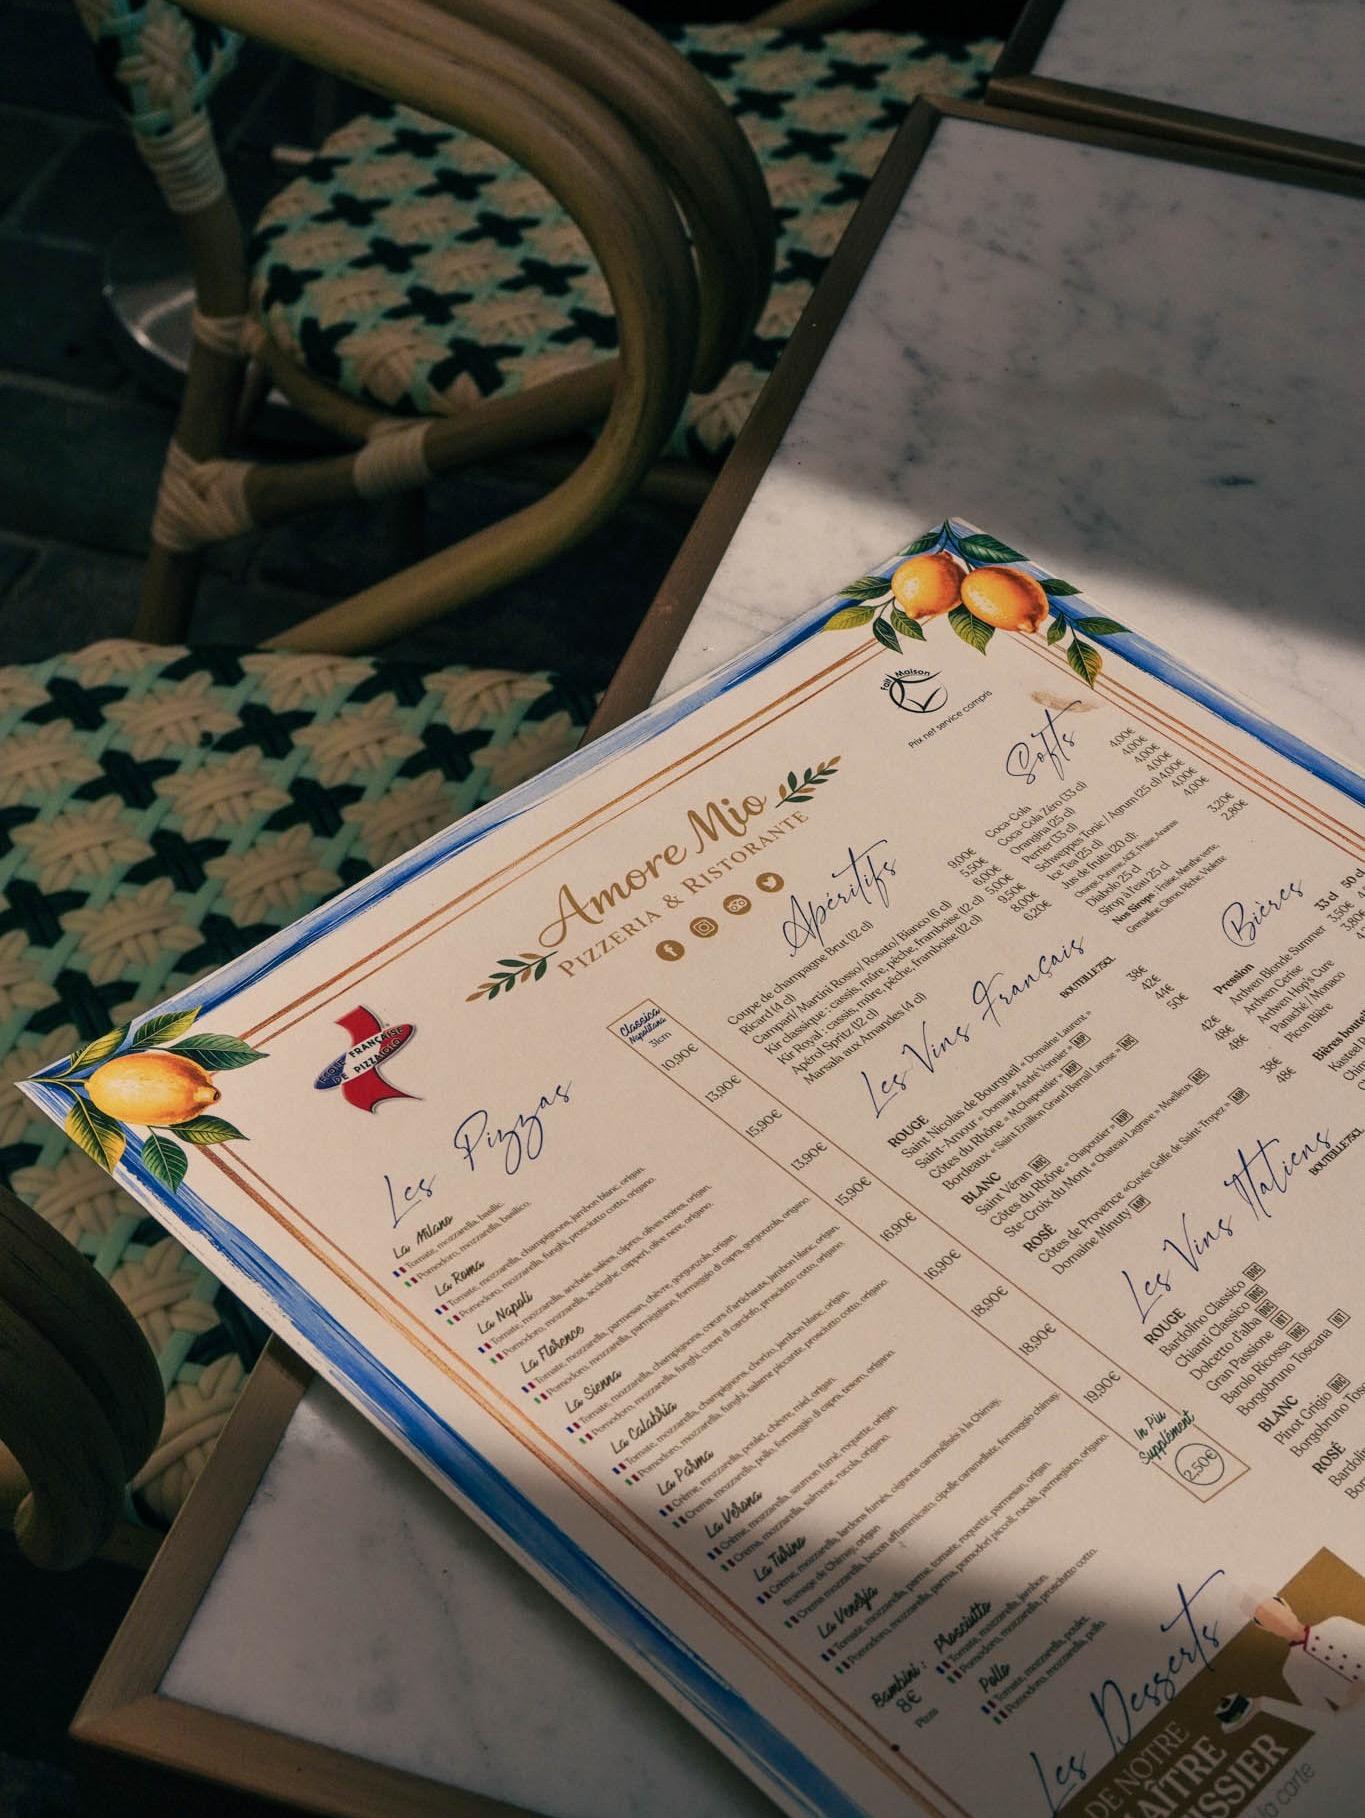 Fait Maison
Prix net service compris
Amore Mio
PIZZERIA & RISTORANTE
ÉCOLE FRANÇAISE
DE PIZZAIOLO
Les Pizzas
Classica
Napolitana
31cm
La Milano
Tomate, mozzarella, basilic.
Pomodoro, mozzarella, basilico.
10,90€
La Roma
Tomate, mozzarella, champignons, jambon blanc, origan.
Pomodoro, mozzarella, funghi, prosciutto cotto, origano.
13,90€
La Napoli
Tomate, mozzarella, anchois salées, câpres, olives noires, origan.
Pomodoro, mozzarella, acciughe, capperi, olive nere, origano.
15,90€
La Florence
Tomate, mozzarella, parmesan, chèvre, gorgonzola, origan.
Pomodoro, mozzarella, parmigiano, formaggio di capra, gorgonzola, origano.
13,90€
La Sienna
Tomate, mozzarella, champignons, cœurs d'artichauts, jambon blanc, origan.
Pomodoro, mozzarella, funghi, cuore di carciofo, prosciutto cotto, origano.
15,90€
La Calabria
Tomate, mozzarella, champignons, chorizo, jambon blanc, origan.
Pomodoro, mozzarella, funghi, salame piccante, prosciutto cotto, origano.
16,90€
La Parma
Crème, mozzarella, poulet, chèvre, miel, origan.
Crema, mozzarella, pollo, formaggio di capra, tesoro, origano.
16,90€
La Verona
Crème, mozzarella, saumon fumé, roquette, origan.
Crema, mozzarella, salmone, rucola, origano.
18,90€
La Turino
Crème, mozzarella, lardons fumés, oignons caramélisés à la Chimay,
fromage de Chimay, origan
Crema mozzarella, becon affummicato, cipolle caramellate, formaggio chimay.
18,90€
La Venezia
Tomate, mozzarella, parme, tomate, roquette, parmesan, origan.
Pomodoro, mozzarella, parma, pomodori piccoli, rucola, parmegiano, origano.
19,90€
In Piu
Supplément
2,50€
Bambini :
8€
Pizza
Prosciutto
Tomate, mozzarella, jambon.
Pomodoro, mozzarella, prosciutto cotto.
Pollo
Tomate, mozzarella, poulet.
Pomodoro, mozzarella, pollo
Apéritifs
Coupe de champagne Brut (12 cl) 9,00€
Ricard (4 cl) 5,50€
Campari/ Martini Rosso/ Rosato/ Bianco (6 cl) 6,00€
Kir classique : cassis, mûre, pêche, framboise (12 cl) 5,00€
Kir Royal : cassis, mûre, pêche, framboise (12 cl) 9,50€
Apérol Spritz (12 cl) 8,00€
Marsala aux Amandes (4 cl) 6,20€
Softs
Coca-Cola 4,00€
Coca-Cola Zéro (33 cl) 4,00€
Orangina (25 cl) 4,00€
Perrier (33 cl) 4,00€
Schweppes Tonic / Agrum (25 cl) 4,00€
Ice Tea (25 cl) 4,00€
Jus de fruits (20 cl): 4,00€
Orange, Pomme, ACE, Fraise, Ananas
Diabolo 25 cl 3,20€
Sirop à l'eau 25 cl 2,80€
Nos Sirops : Fraise, Menthe verte,
Grenadine, Citron, Pêche, Violette
Les Vins Français
BOUTEILLE 75CL
ROUGE
Saint Nicolas de Bourgueil « Domaine Laurent » 38€
Saint-Amour « Domaine André Vonnier » AOP 42€
Côtes du Rhône « M.Chapoutier » AOP 44€
Bordeaux « Saint Emilion Grand Barrail Larose » AOC 50€
BLANC
Saint Véran AOC 42€
Côtes du Rhône « Chapoutier » AOP 48€
Ste-Croix du Mont « Chateau Lagrave » Moelleux AOC 48€
ROSÉ
Côtes de Provence «Cuvée Golfe de Saint-Tropez » AOP 38€
Domaine Minuty AOP 48€
Bières
33 cl 50 cl
Pression
Ardwen Blonde Summer 3,50€
Ardwen Cerise 3,80€
Ardwen Hop's Cure
Panaché / Monaco
Picon Bière
Bières
Kasteel
Les Vins Italiens
BOUTEILLE 75CL
ROUGE
Bardolino Classico DOC
Chianti Classico DOC
Dolcetto d'alba DOC
Gran Passione IGT
Barolo Ricossa DOC
Borgobruno Toscana IGT
BLANC
Pinot Grigio DOC
Borgobruno
ROSÉ
Les Desserts
DE NOTRE